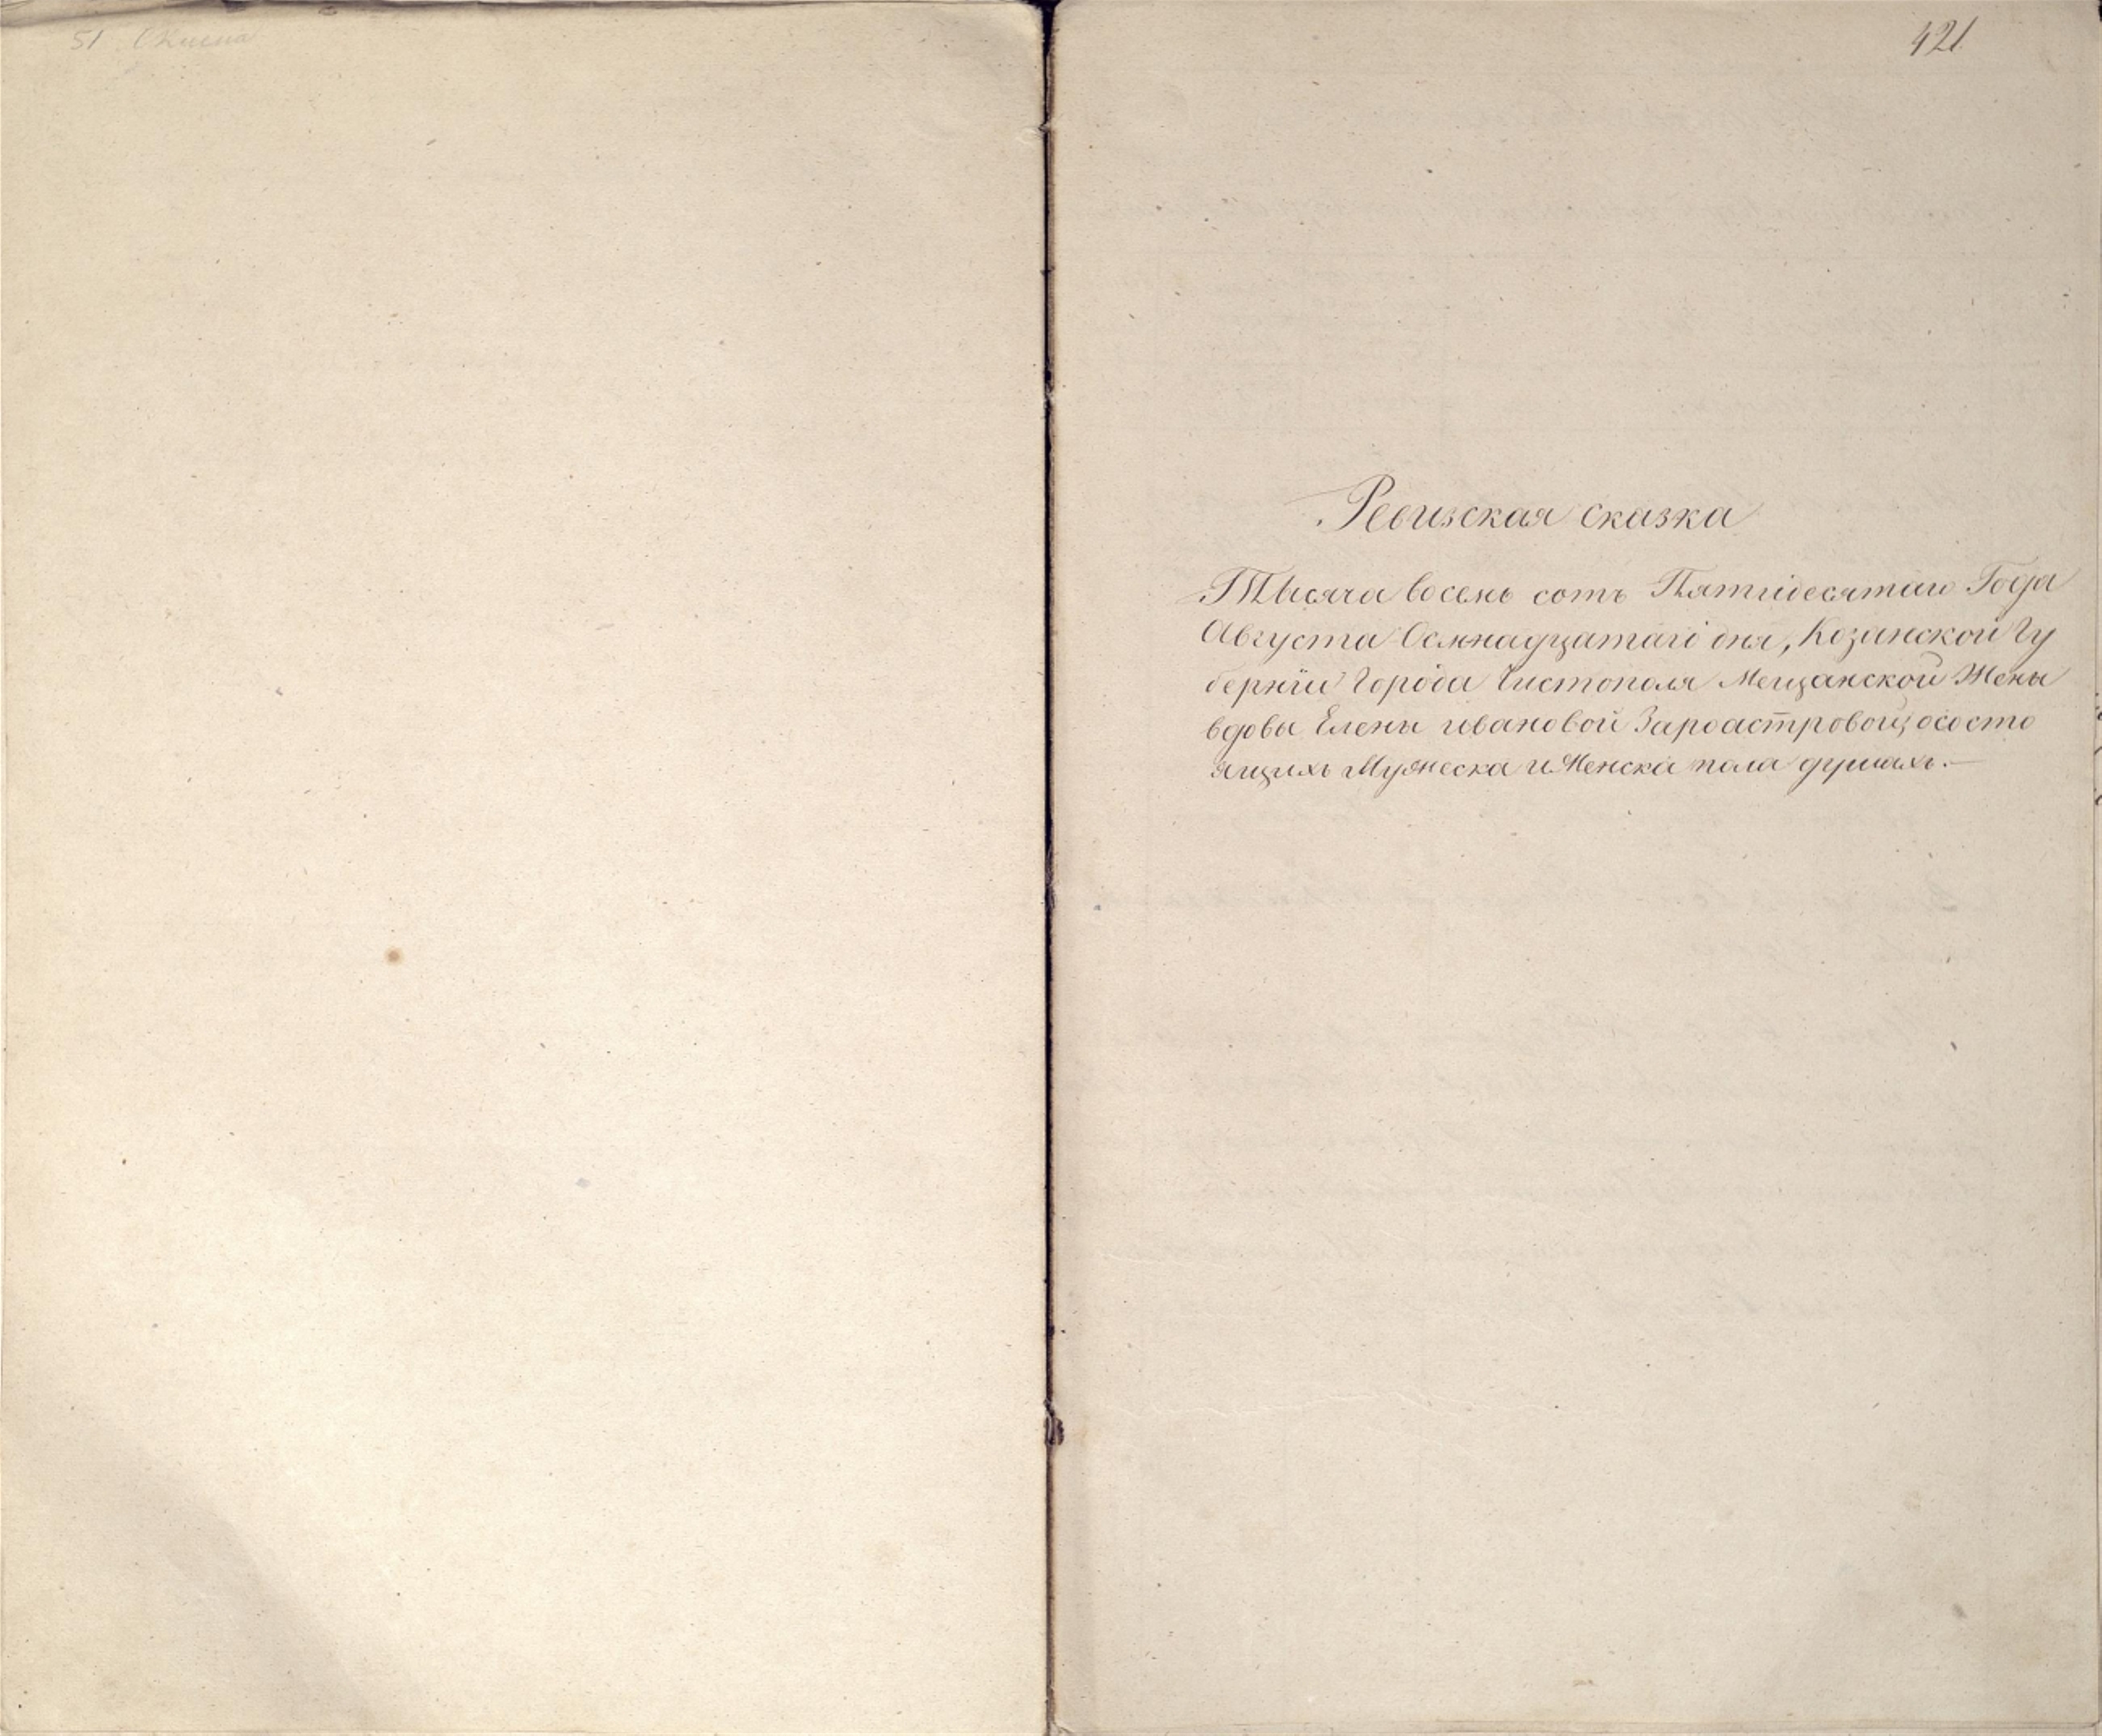 51
421
Ревизская сказка
Тысяча восемь сотъ Пятидесятаго Года
Августа Осмнадцатаго дня, Козанской Гу
берніи Города Чистополя Мещанской Жены
вдовы Елены ивановой Зароастровой, осостo
ящихъ Мужеска и Женска пола душахъ.—